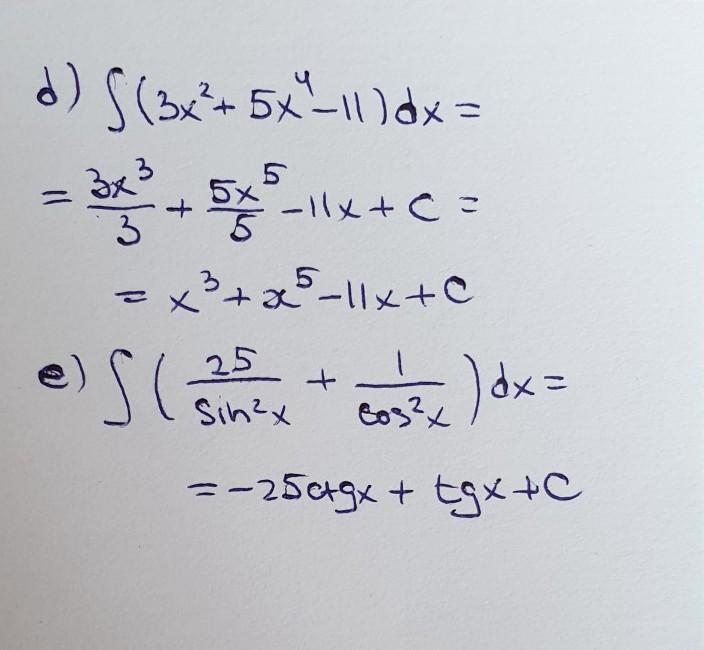 d) ∫(3x²+5x⁴-11)dx=
= 3x³/3 + 5x⁵/5 -11x+C=
= x³+x⁵-11x+C
e) ∫(25/sin²x + 1/cos²x)dx=
=-25ctgx+tgx+C